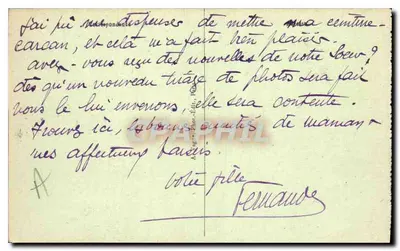 J'ai pu me dispenser de mettre ma ceinture
carcan, et celà m'a fait bien plaisir.
avez-vous reçu des nouvelles de notre
dès qu'un nouveau tirage de photos sera fait
nous le lui enverrons elle sera contente.
Trouvez ici, les amitiés de maman
mes affectueux baisers.
votre fille
Fernande
A